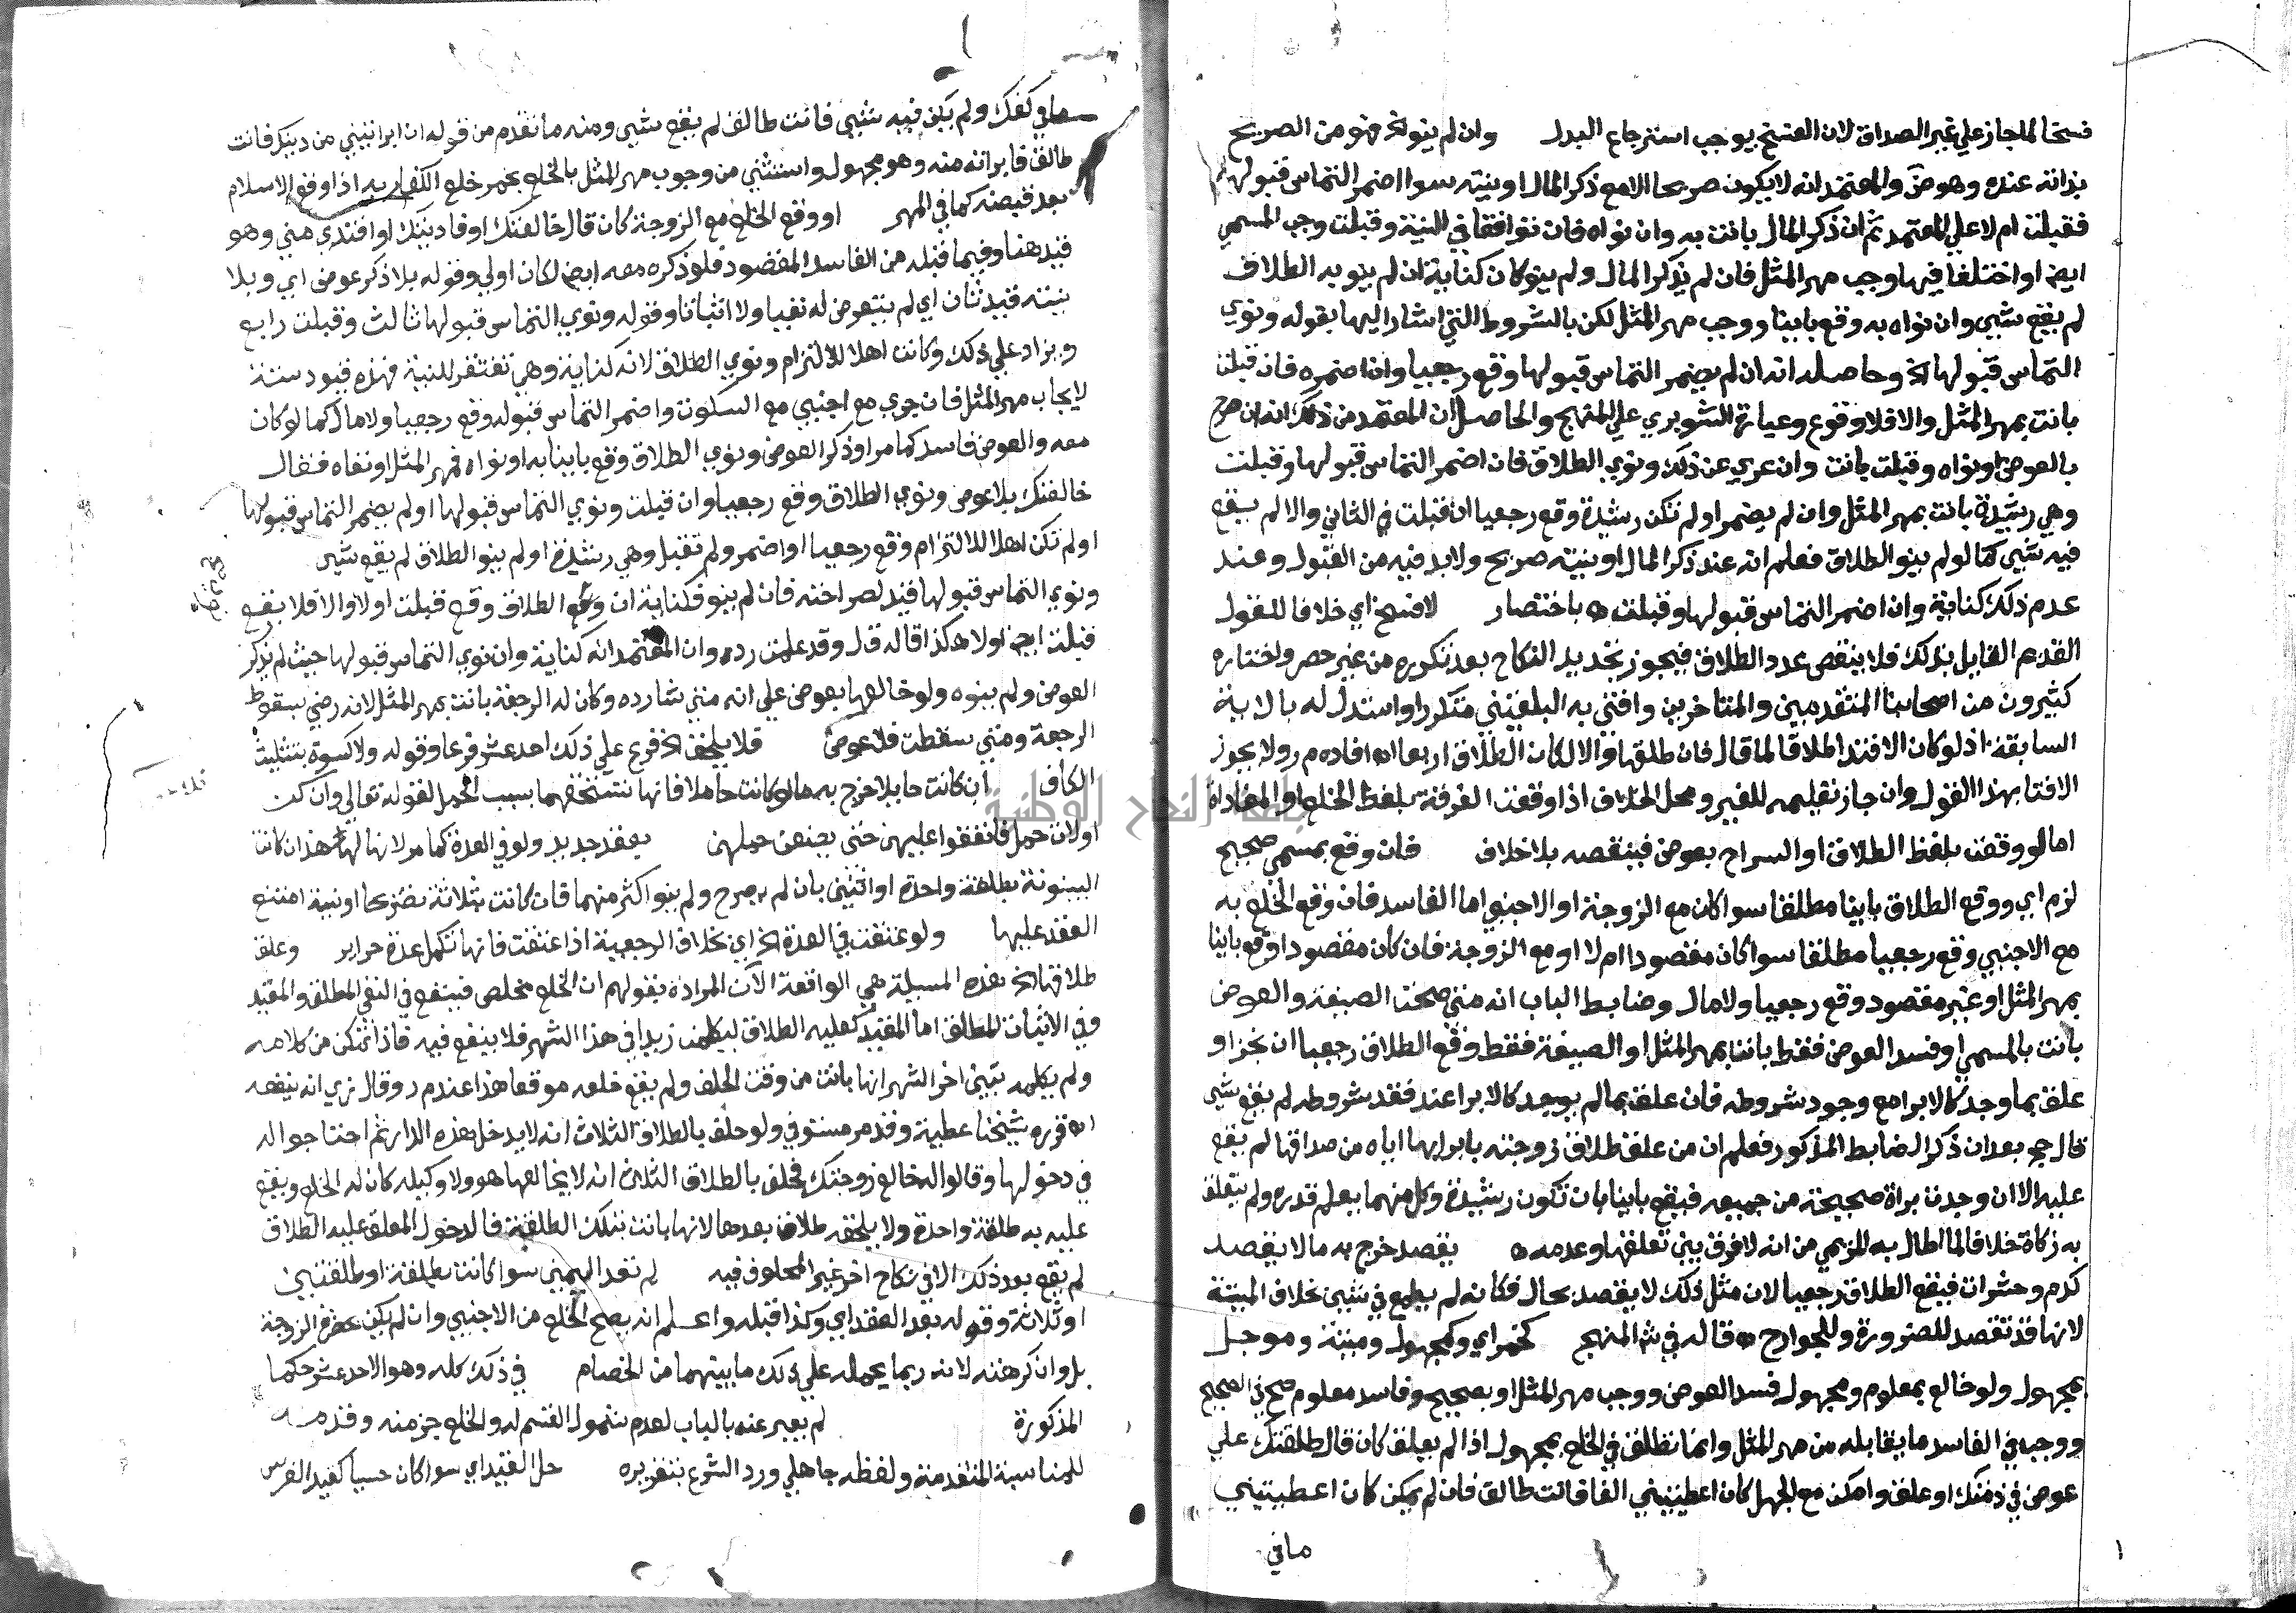 فسخا لما جاز علي غير الصداق لان الفسخ يوجب استرجاع البدل وان لم ينو الخ فهو من الصريح
بذاته عنده وهو ض والمعتمد انه لا يكون صريحا الا مع ذكر المال او نيته سوا اضمر التماس قبولها
فقبلت ام لا علي المعتمد ثم ان ذكر المال بانت به وان نواه فان توافقا في النية وقبلت وجب المسمي
ايض او اختلفا فيها وجب مهر المثل فان لم يذكر المال ولم ينو كان كناية ان لم ينو به الطلاق
لم يقع شيي وان نواه به وقع باينا ووجب مهر المثل لكن بالشروط التي اشار اليها بقوله ونوي
التماس قبولها الخ وحاصله انه ان لم يضمر التماس قبولها وقع رجعيا وان اضمره فان قبلت
بانت بمهر المثل والا فلا وقوع وعبارة الشوبري علي المنهج والحاصل ان المعتمد من ذلك انه ان صرح
بالعوض او نواه وقبلت بانت وان عري عن ذلك ونوي الطلاق فان اضمر التماس قبولها وقبلت
وهي رشيدة بانت بمهر المثل وان لم يضمر او لم تكن رشيدة وقع رجعيا ان قبلت في الثاني والا لم يقع
فيه شيي كما لو لم ينو الطلاق فعلم انه عند ذكر المال او نيته صريح ولا بد فيه من القبول وعند
عدم ذلك كناية وان اضمر التماس قبولها وقبلت اه باختصار لا فسخ اي خلافا للقول
القديم القايل بذلك فلا ينقص عدد الطلاق فيجوز تجديد النكاح بعد تكريره من غير حصر واختاره
كثيرون من اصحابنا المتقدمين والمتاخرين وافتي به البلقيني متكررا واستدل له بالاية
السابقة اذ لو كان الافتدا طلاقا لما قال فان طلقها والا لكان الطلاق اربعا اه افاده م ر ولا يجوز
الافتا بهذا القول وان جاز تقليده للغير ومحل الخلاف اذا وقعت الفرقة بلفظ الخلع او المفاداة
اما لو وقعت بلفظ الطلاق او السراح بعوض فينقصه بلا خلاف فان وقع بمسمي صحيح
لزم اي ووقع الطلاق باينا مطلقا سوا كان مع الزوجة او الاجنبي اما الفاسد فان وقع الخلع به
مع الاجنبي وقع رجعيا مطلقا سوا كان مقصودا ام لا او مع الزوجة فان كان مقصودا وقع باينا
بمهر المثل او غير مقصود وقع رجعيا ولا مال وضابط الباب انه متي صحت الصيغة والعوض
بانت بالمسمي او فسد العوض فقط بانت بمهر المثل او الصيغة فقط وقع الطلاق رجعيا ان نجز او
علق بما وجد كالابرا مع وجود شروطه فان علق بما لم يوجد كالابرا عند فقد شروطه لم يقع شيي
قال حج بعد ان ذكر الضابط المذكور فعلم ان من علق طلاق زوجته بابرايها اياه من صداقها لم يقع
عليه الا ان وجدت براة صحيحة من جميعه فيقع باينا بان تكون رشيدة وكل منهما يعلم قدره ولم يتعلق
به زكاة خلافا لما اطال به الريمي من انه لا فرق بين تعلقها وعدمه اه يقصد خرج به ما لا يقصد
كدم وحشرات فيقع الطلاق رجعيا لان مثل ذلك لا يقصد بحال فكانه لم يطمع في شيي بخلاف الميتة
لانها قد تقصد للضرورة وللجوارح اه قاله في ش المنهج كخمر اي وكمجهول وميتة وموجل
بمجهول ولو خالع بمعلوم ومجهول فسد العوض ووجب مهر المثل او بصحيح وفاسد معلوم صح في الصحيح
ووجب في الفاسد ما يقابله من مهر المثل وانما تطلق في الخلع بمجهول اذا لم يعلق كان قال طلقتك علي
عوض في ذمتك او علق وامكن مع الجهل كان اعطيتيني الفا فانت طالق فان لم يمكن كان اعطيتيني
ما في
ما في كفك ولم يكن فيه شيي فانت طالق لم يقع شيي ومنه ما تقدم من قوله ان ابراتيني من دينك فانت
طالق فابراته منه وهو مجهول واستثني من وجوب مهر المثل بالخلع بخمر خلع الكفار به اذا وقع الاسلام
بعد قبضه كما في المهر او وقع الخلع مع الزوجة كان قال خالعتك او فاديتك او افتدي مني وهو
قيد هنا وفيما قبله من الفاسد المقصود فلو ذكره معه ايض لكان اولي وقوله بلا ذكر عوض اي وبلا
نيته قيد ثان اي لم يتعرض له نفيا ولا اثباتا وقوله ونوي التماس قبولها ثالث وقبلت رابع
ويزاد علي ذلك وكانت اهلا للالتزام ونوي الطلاق لانه كناية وهي تفتقر للنية فهذه قيود ستة
لايجاب مهر المثل فان جري مع اجنبي مع السكوت واضمر التماس قبوله وقع رجعيا ولا مال كما لو كان
معه والعوض فاسد كما مر او ذكر العوض ونوي الطلاق وقع باينا به او نواه فمهر المثل او نفاه فقال
خالعتك بلا عوض ونوي الطلاق وقع رجعيا وان قبلت ونوي التماس قبولها او لم يضمر التماس قبولها
او لم تكن اهلا للالتزام وقع رجعيا او اضمر ولم تقبل وهي رشيدة او لم ينو الطلاق لم يقع شيي
ونوي التماس قبولها قيد لصراحته فان لم ينو فكناية ان وقع الطلاق وقع قبلت اولا والا فلا يقع
قبلت ايض اولا هكذا قاله ق ل وقد علمت رده وان المعتمد انه كناية وان نوي التماس قبولها حيث لم يذكر
العوض ولم ينوه ولو خالعها بعوض علي انه متي شا رده وكان له الرجعة بانت بمهر المثل لانه رضي بسقوط
الرجعة ومتي سقطت فلا عوض فلا يلحق الخ فرع علي ذلك احد عشر فرعا وقوله ولا كسوة بتثليث
الكاف ان كانت حايلا خرج به ما لو كانت حاملا فانها تستحقهما بسبب الحمل لقوله تعالي وان كن
اولات حمل فانفقوا عليهن حتي يضعن حملهن بعقد جديد ولو في العدة كما مر لانها لها هذا ان كانت
البينونة بطلقة واحدة او اثنتين بان لم يصرح ولم ينو اكثر منهما فان كانت بثلاثة تصريحا او نية امتنع
العقد عليها ولو عتقت في العدة الخ اي بخلاف الرجعية اذا عتقت فانها تكمل عدة حراير وعلق
طلاقها الخ هذه المسيلة هي الواقعة الآن المرادة بقولهم ان الخلع مخلص فينفع في النفي المطلق والمقيد
وفي الاثبات المطلق اما المقيد كعليه الطلاق ليكلمن زيدا في هذا الشهر فلا ينفع فيه فاذا تمكن من كلامه
ولم يكلمه تبين اخر الشهر انها بانت من وقت الحلف ولم يقع خلعه موقعا هذا عند م ر وقال زي انه ينفعه
اه قرره شيخنا عطية وقد مر مستوفي ولو حلف بالطلاق الثلاث انه لا يدخل هذه الدار ثم احتاجوا له
في دخولها وقالوا له خالع زوجتك فحلف بالطلاق الثلاث انه لا يخالعها هو ولا وكيله كان له الخلع ويقع
عليه به طلقة واحدة ولا يلحقه طلاق بعدها لانها بانت بتلك الطلقة فالدخول المعلق عليه الطلاق
لم يقع بعد ذلك الا في نكاح اخر غير المحلوف فيه لم تعد اليمين سوا كانت بطلقة او طلقتين
او ثلاثة وقوله بعد العقد اي وكذا قبله واعلم انه يصح الخلع من الاجنبي وان لم يكن بحضرة الزوجة
بل وان كرهته لانه ربما يحمله علي ذلك ما بينهما من الخصام في ذلك كله وهو الاحد عشر حكما
المذكورة لم يعبر عنه بالباب لعدم شمول القسم له والخلع جز منه وقدمه
للمناسبة المتقدمة ولفظه جاهلي ورد الشرع بتقريره حل القيد اي سوا كان حسيا كقيد الفرس
جامعة النجاح الوطنية